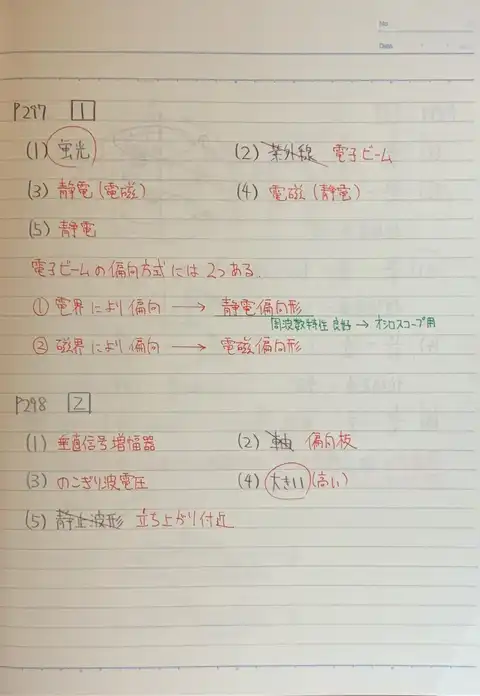 No.
Date
P297 1
(1) 蛍光 (2) 紫外線 電子ビーム
(3) 静電(電磁) (4) 電磁(静電)
(5) 静電
電子ビームの偏向方式には2つある.
① 電界により偏向 → 静電偏向形
周波数特性 良好 → オシロスコープ用
② 磁界により偏向 → 電磁偏向形
P298 2
(1) 垂直信号増幅器 (2) 軸 偏向板
(3) のこぎり波電圧 (4) 大きい(高い)
(5) 静止波形 立ち上がり付近